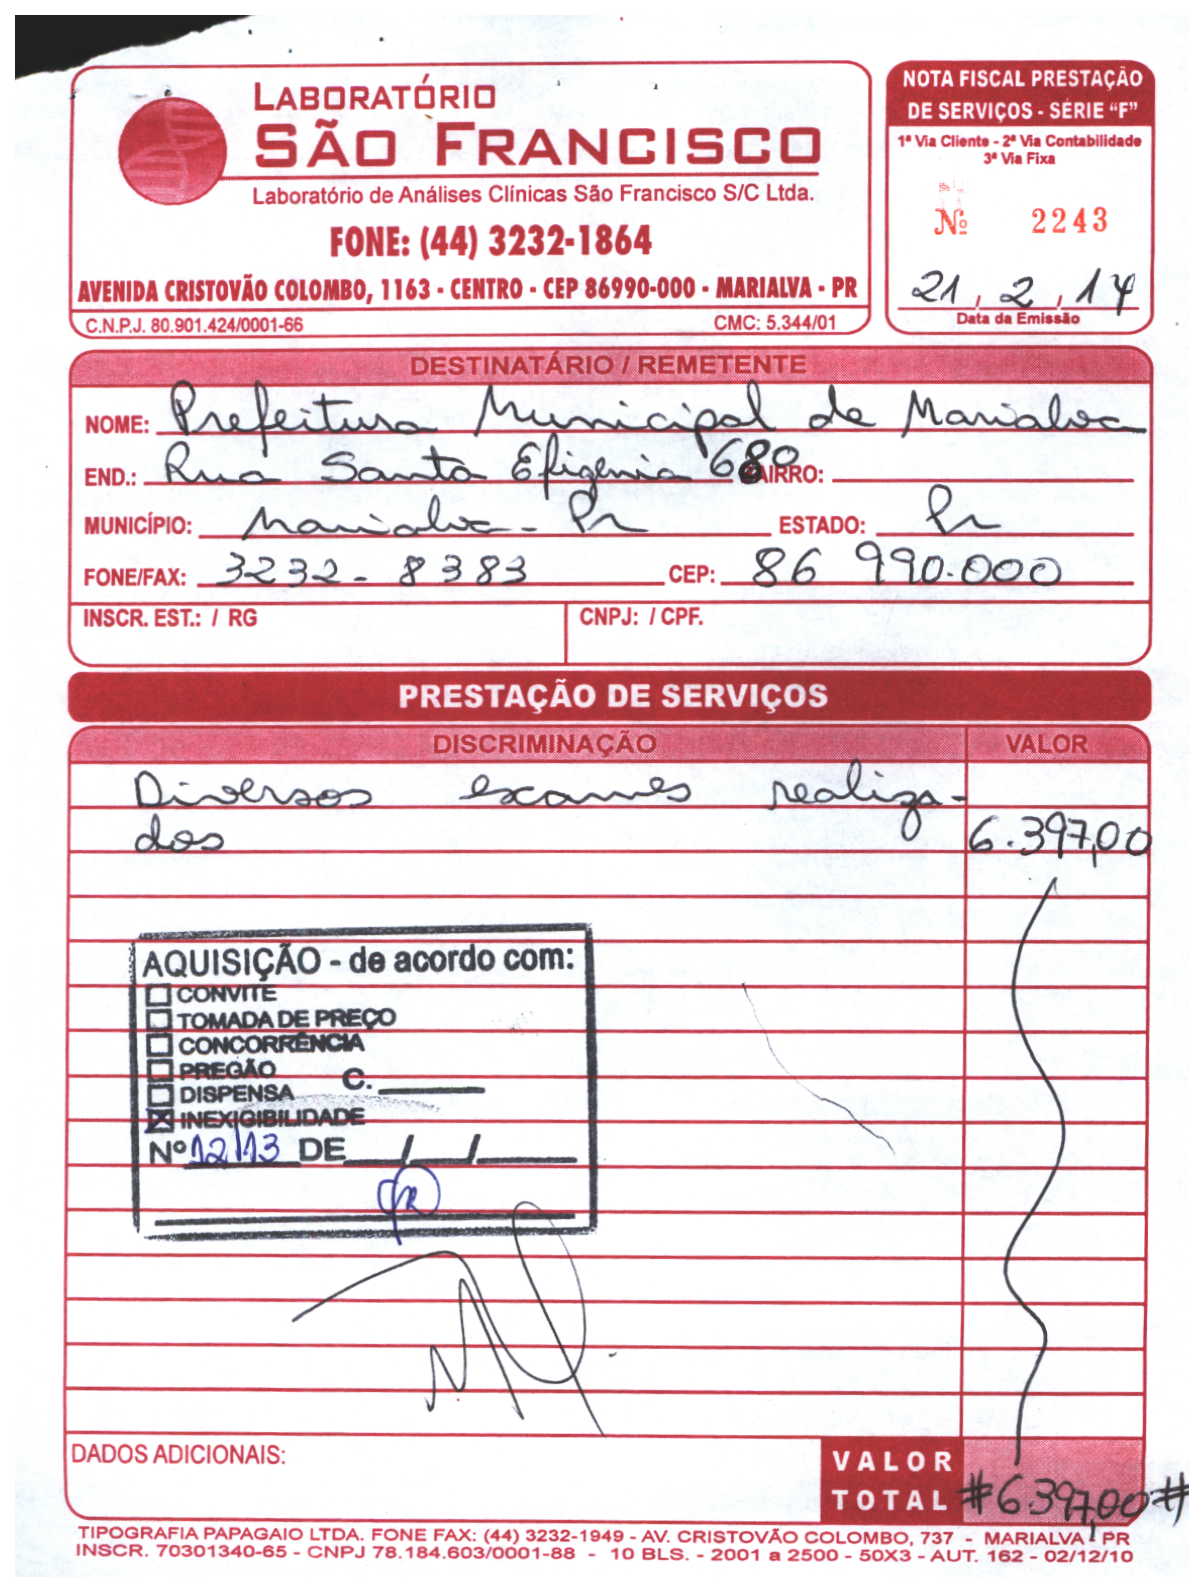 LABORATÓRIO
SÃO FRANCISCO
Laboratório de Análises Clínicas São Francisco S/C Ltda.
FONE: (44) 3232-1864
AVENIDA CRISTOVÃO COLOMBO, 1163 - CENTRO - CEP 86990-000 - MARIALVA - PR
C.N.P.J. 80.901.424/0001-66 CMC: 5.344/01
NOTA FISCAL PRESTAÇÃO
DE SERVIÇOS - SÉRIE “F”
1ª Via Cliente - 2ª Via Contabilidade
3ª Via Fixa
Nº 2243
21, 2, 14
Data da Emissão
DESTINATÁRIO / REMETENTE
NOME: Prefeitura Municipal de Marialva
END.: Rua Santa Efigênia 680 BAIRRO:
MUNICÍPIO: Marialva - Pr ESTADO: Pr
FONE/FAX: 3232-8383 CEP: 86 990.000
INSCR. EST.: / RG CNPJ: / CPF.
PRESTAÇÃO DE SERVIÇOS
DISCRIMINAÇÃO VALOR
Diversos exames realiza-
dos 6.397,00
AQUISIÇÃO - de acordo com:
CONVITE
TOMADA DE PREÇO
CONCORRÊNCIA
PREGÃO
DISPENSA C.
INEXIGIBILIDADE
Nº 12/13 DE / /
DADOS ADICIONAIS:
VALOR
TOTAL #6.397,00#
TIPOGRAFIA PAPAGAIO LTDA. FONE FAX: (44) 3232-1949 - AV. CRISTOVÃO COLOMBO, 737 - MARIALVA - PR
INSCR. 70301340-65 - CNPJ 78.184.603/0001-88 - 10 BLS. - 2001 a 2500 - 50X3 - AUT. 162 - 02/12/10